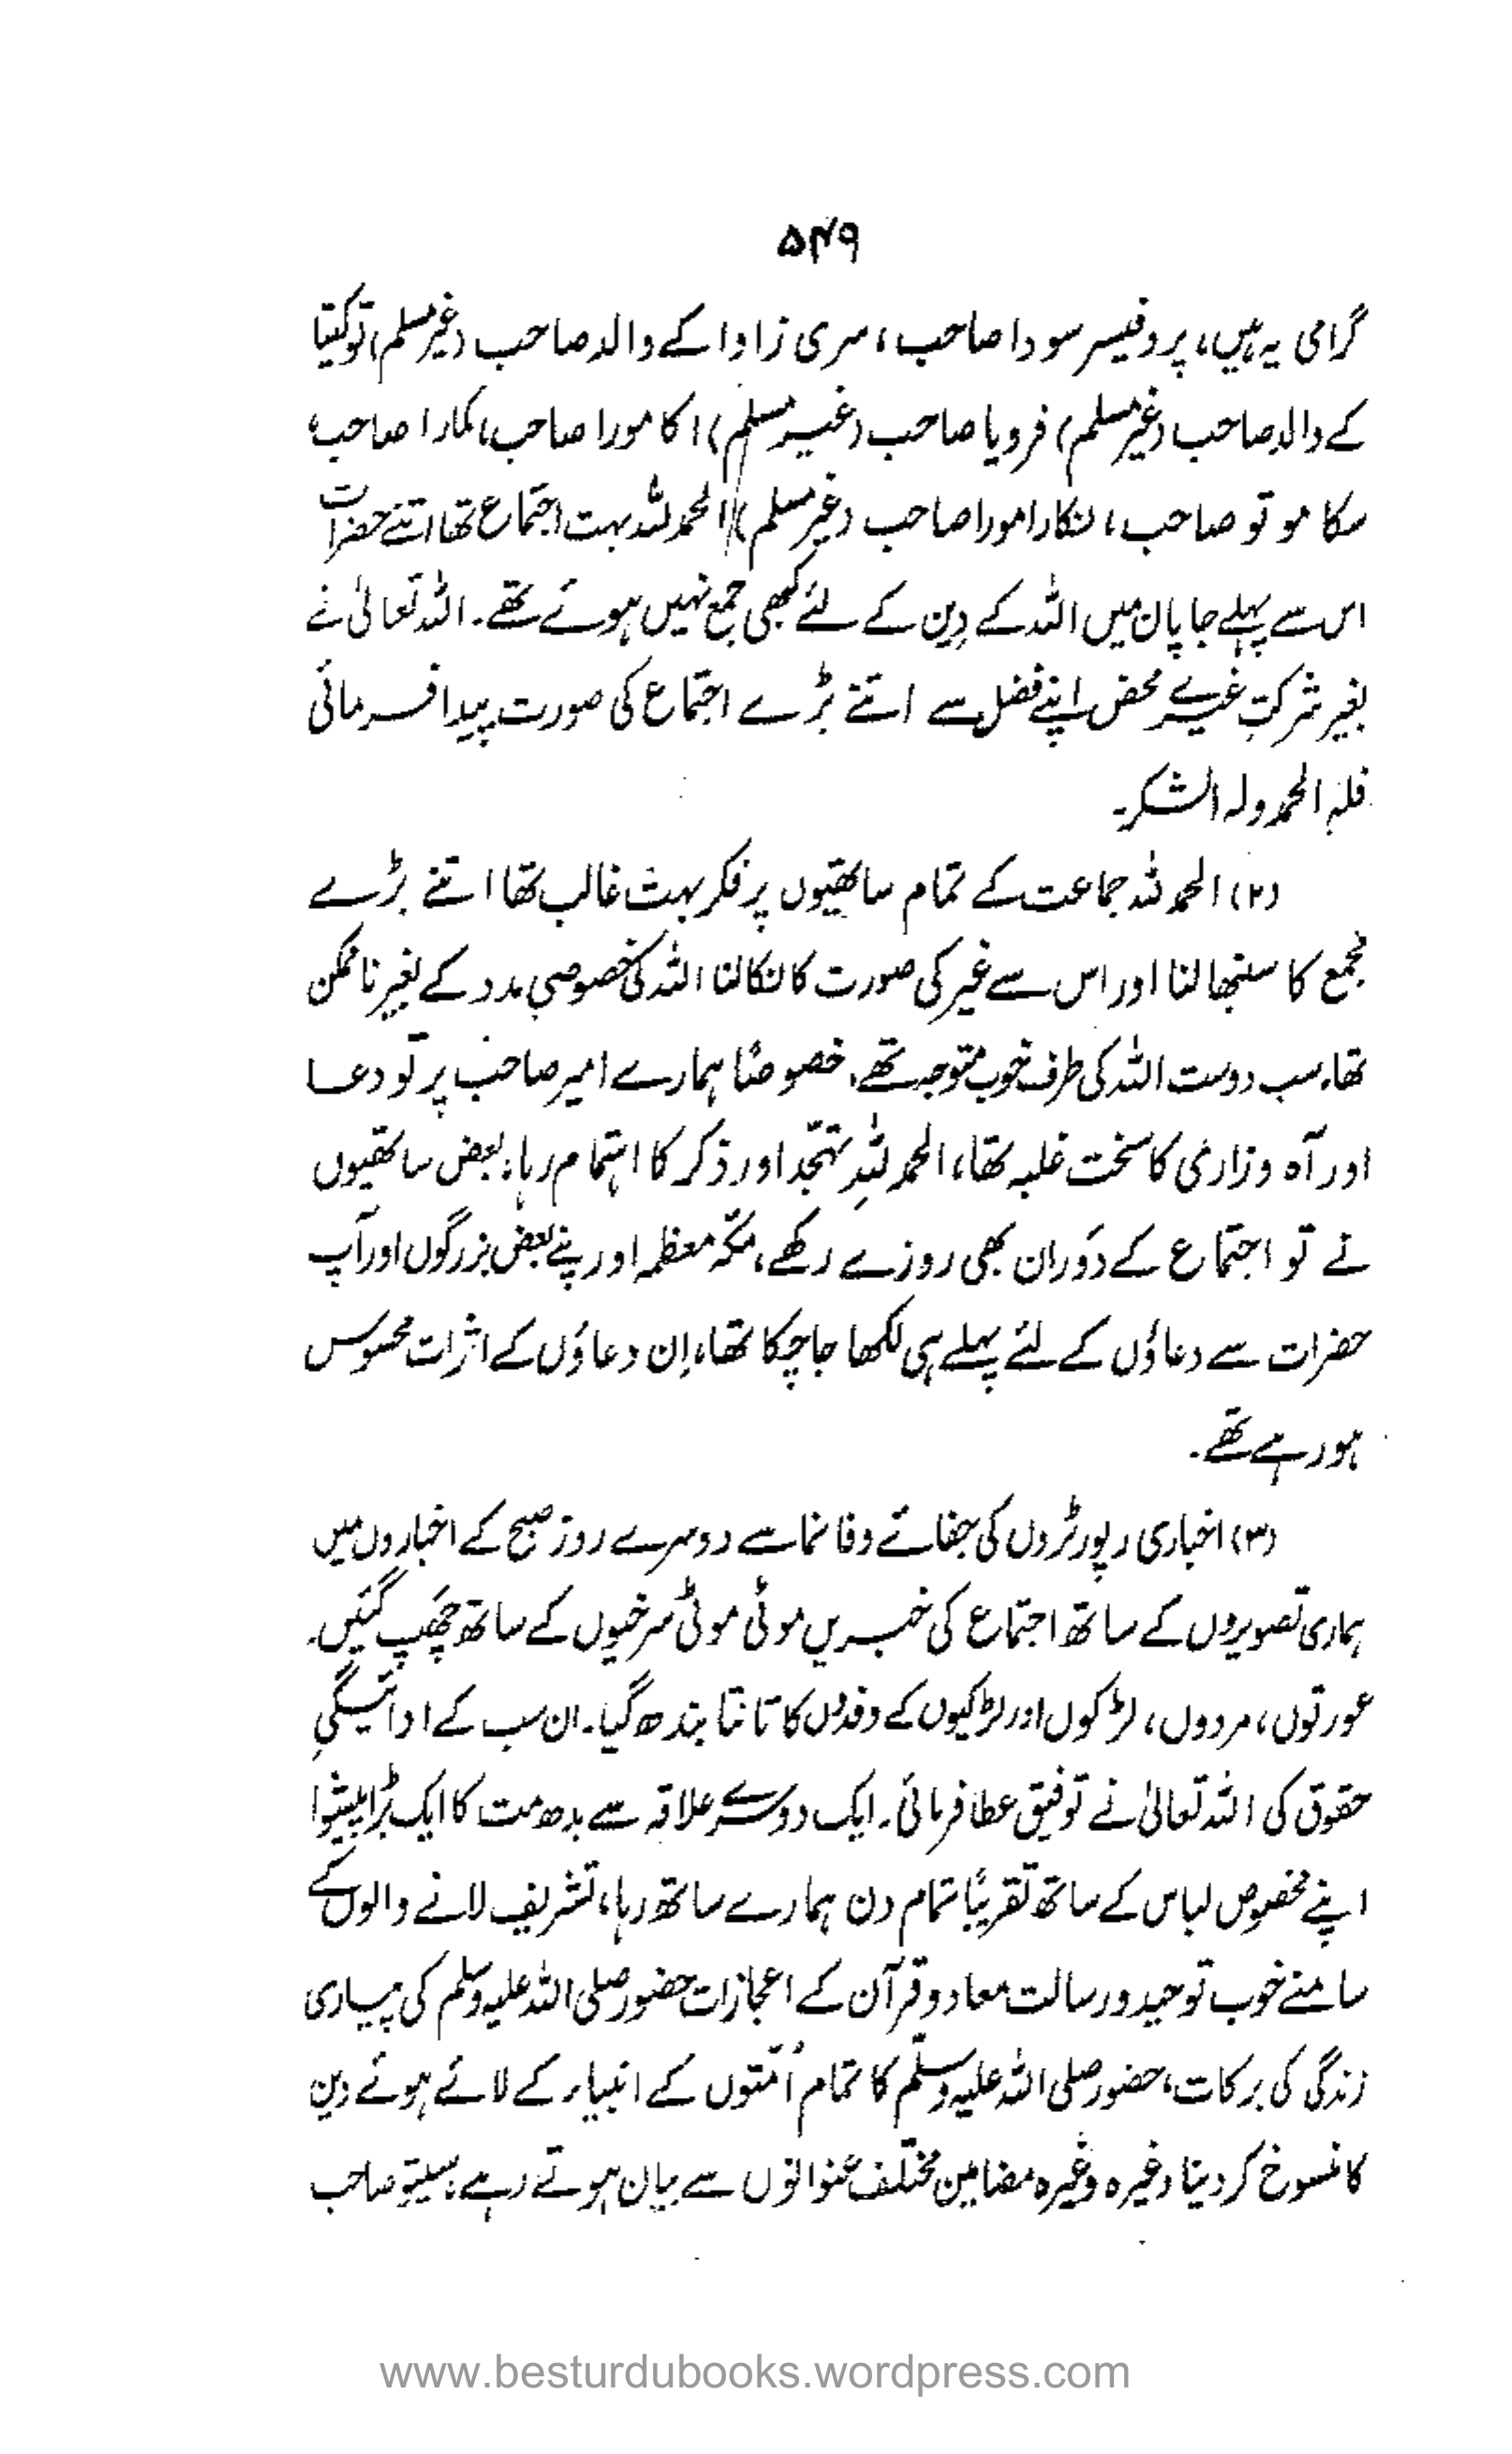 ۵۴۹
گرامی یہ ہیں، پروفیسر سودا صاحب، سری زاوا کے والد صاحب (غیر مسلم) توکیتا
کے والد صاحب (غیر مسلم) فرویا صاحب (غیر مسلم) اکامورا صاحب، لمارا صاحب،
سکاموتو صاحب، لنکارامورا صاحب (غیر مسلم) الحمد للہ بہت اجتماع تھا اتنے حضرات
اس سے پہلے جاپان میں اللہ کے دِین کے لئے کبھی جمع نہیں ہوئے تھے۔ اللہ تعالیٰ نے
بغیر شرکتِ غیرے محض اپنے فضل سے اتنے بڑے اجتماع کی صورت پیدا فرمائی
فلہ الحمد ولہ الشکر۔
(۲) الحمد للہ جماعت کے تمام ساتھیوں پر فکر بہت غالب تھا اتنے بڑے
مجمع کا سنبھالنا اور اس سے غیر کی صورت کا نکالنا اللہ کی خصوصی مدد کے بغیر ناممکن
تھا، سب دوست اللہ کی طرف خوب متوجہ تھے، خصوصاً ہمارے امیر صاحب پر تو دعا
اور آہ وزاری کا سخت غلبہ تھا، الحمد للہِ تہجّد اور ذکر کا اہتمام رہا، بعض ساتھیوں
نے تو اجتماع کے دَوران بھی روزے رکھے، مکّہ معظمہ اور پنے بعض بزرگوں اور آپ
حضرات سے دعاؤں کے لئے پہلے ہی لکھا جاچکا تھا، اِن دعاؤں کے اثرات محسوس
ہورہے تھے۔
(۳) اخباری رپورٹروں کی جفائے وفا نما سے دوسرے روز صبح کے اخباروں میں
ہماری تصویروں کے ساتھ اجتماع کی خبریں موٹی موٹی سرخیوں کے ساتھ چھَپ گئیں،
عورتوں، مردوں، لڑکوں اور لڑکیوں کے وفدوں کا تانتا بندھ گیا۔ ان سب کے ادائیگیِ
حقوق کی اللہ تعالیٰ نے توفیق عطا فرمائی۔ ایک دوسرے علاقہ سے بدھ مت کا ایک بڑا پیشوا
اپنے مخصوص لباس کے ساتھ تقریباً تمام دن ہمارے ساتھ رہا، تشریف لانے والوں کے
سامنے خوب توحید ورسالت معاد وقرآن کے اعجازات حضور صلی اللہ علیہ وسلم کی پیاری
زندگی کی برکات، حضور صلی اللہ علیہ وسلّم کا تمام اُمّتوں کے انبیاء کے لائے ہوئے دین
کا منسوخ کردینا وغیرہ وغیرہ مضامین مختلف عنوانوں سے بیان ہوتے رہے، سیتو صاحب
www.besturdubooks.wordpress.com